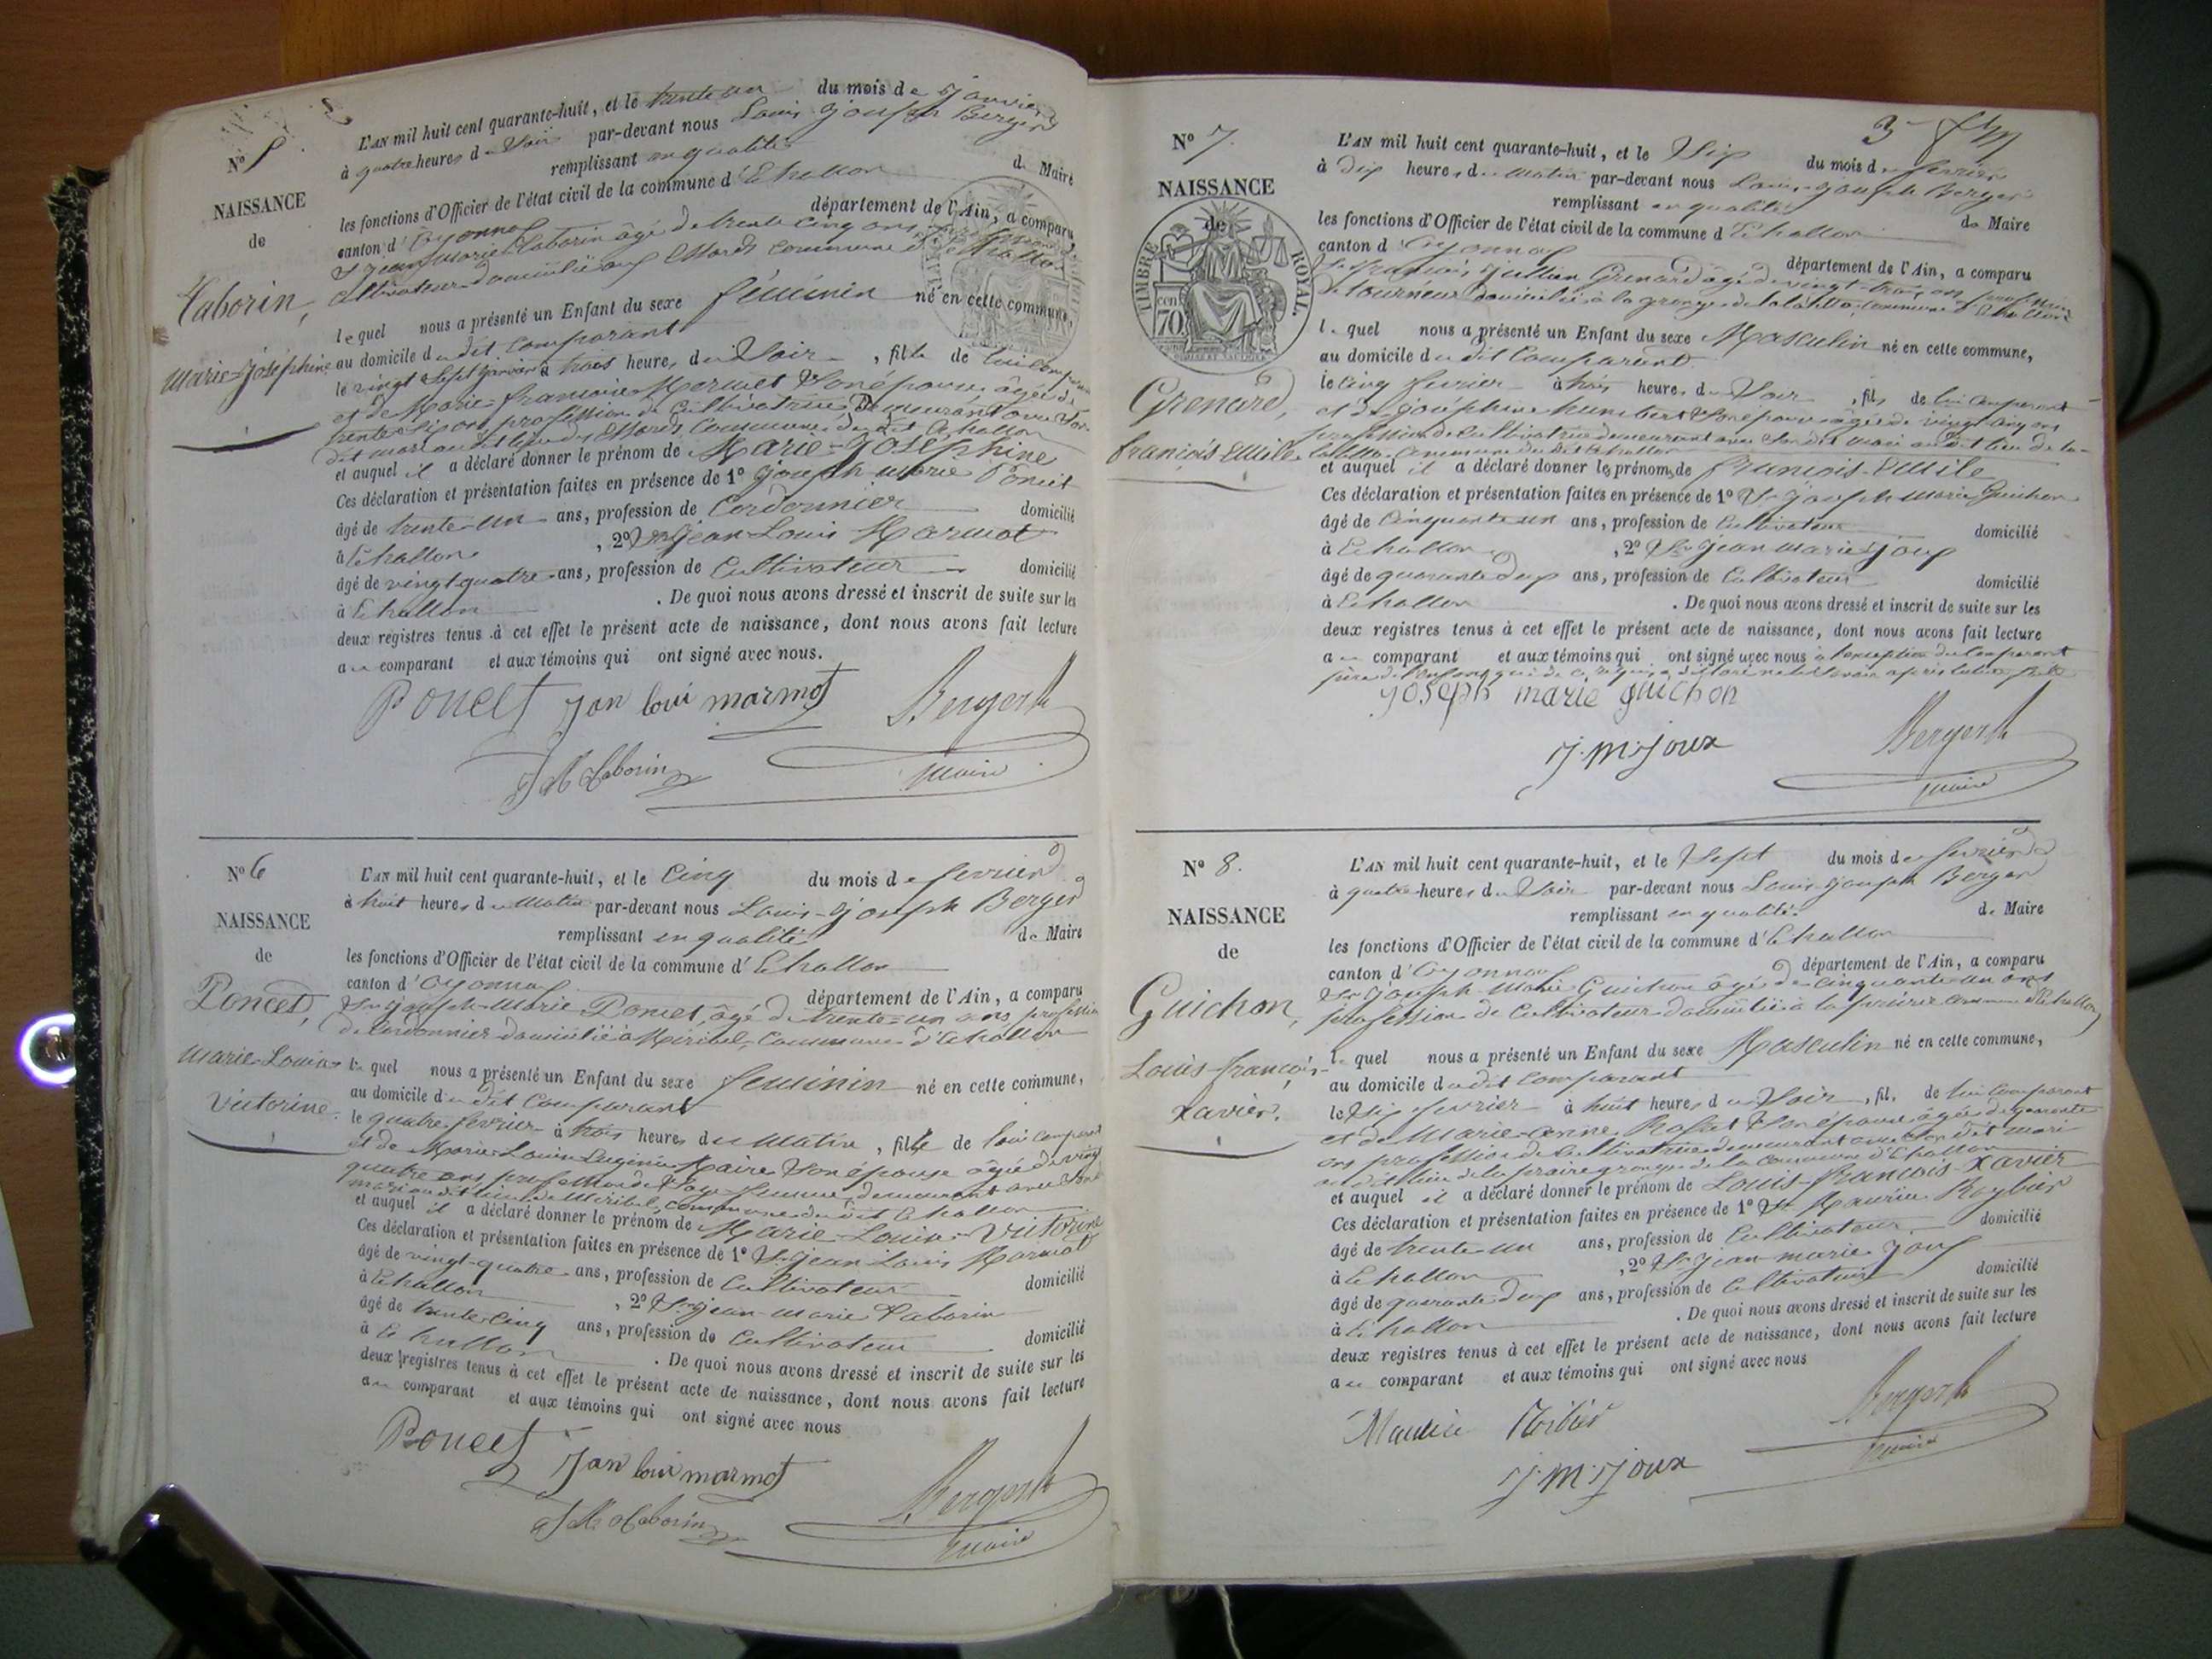 N° 5.
NAISSANCE
de
Taborin,
Marie-Joséphine
L'AN mil huit cent quarante-huit, et le trente un du mois de Janvier
à quatre heures du Soir par-devant nous Louis Joseph Berger
remplissant en qualité de Maire
les fonctions d'Officier de l'état civil de la commune d'Echallon
canton d'Oyonnax département de l'Ain, a comparu
Sr Jean-Marie Taborin âgé de trente cinq ans
cultivateur domicilié aux Mards commune d'Echallon
lequel nous a présenté un Enfant du sexe féminin né en cette commune,
au domicile du dit Comparant
le vingt Sept Janvier à trois heures du Soir, fille de lui Comparant
et de Marie-françoise Marmet Son épouse âgée de
trente Six ans profession de Cultivatrice Demeurant avec Son
dit mari au dit lieu des Mards Commune du dit Echallon
et auquel il a déclaré donner le prénom de Marie-Joséphine
Ces déclaration et présentation faites en présence de 1° Joseph Marie Poncet
âgé de trente-un ans, profession de Cordonnier domicilié
à Echallon, 2° Sr Jean-Louis Marmot
âgé de vingt quatre ans, profession de Cultivateur domicilié
à Echallon. De quoi nous avons dressé et inscrit de suite sur les
deux registres tenus à cet effet le présent acte de naissance, dont nous avons fait lecture
au comparant et aux témoins qui ont signé avec nous.
Poncet Jan loui marmot Berger
J M Taborin maire
N° 6
NAISSANCE
de
Poncet,
Marie-Louise
Victorine.
L'AN mil huit cent quarante-huit, et le Cinq du mois de fevrier
à huit heures du Matin par-devant nous Louis-Joseph Berger
remplissant en qualité de Maire
les fonctions d'Officier de l'état civil de la commune d'Echallon
canton d'Oyonnax département de l'Ain, a comparu
Sr Joseph-Marie Poncet, âgé de trente-un ans, profession
de Cordonnier domicilié à Miribel, Commune d'Echallon
lequel nous a présenté un Enfant du sexe feminin né en cette commune,
au domicile du dit Comparant
le quatre fevrier à trois heures du Matin, fille de lui comparant
et de Marie Louise Eugénie Maire Son épouse âgée de vingt
quatre ans, profession de Sage-femme, demeurant avec Son
mari au dit lieu de Miribel, commune du dit Echallon
et auquel il a déclaré donner le prénom de Marie-Louise-Victorine
Ces déclaration et présentation faites en présence de 1° Sr Jean Louis Marmot
âgé de vingt-quatre ans, profession de Cultivateur domicilié
à Echallon, 2° Sr Jean-Marie Taborin
âgé de trente-Cinq ans, profession de Cultivateur domicilié
à Echallon. De quoi nous avons dressé et inscrit de suite sur les
deux registres tenus à cet effet le présent acte de naissance, dont nous avons fait lecture
au comparant et aux témoins qui ont signé avec nous
Poncet Jan loui marmot Berger
J M Taborin maire
3
N° 7.
NAISSANCE
de
TIMBRE ROYAL
70 cen
Grenard,
françois-Emile
L'AN mil huit cent quarante-huit, et le Six du mois de fevrier
à Dix heures du Matin par-devant nous Louis-Joseph Berger
remplissant en qualité de Maire
les fonctions d'Officier de l'état civil de la commune d'Echallon
canton d'Oyonnax département de l'Ain, a comparu
Sr françois Jullien Grenard âgé de vingt-trois ans profession
de tourneur domicilié à la grange de commune d'Echallon
lequel nous a présenté un Enfant du sexe Masculin né en cette commune,
au domicile du dit Comparant
le Cinq fevrier à trois heures du Soir, fils de lui Comparant
et de Joséphine humbert Son épouse âgée de vingt cinq ans
profession de Cultivatrice demeurant avec Son dit mari au dit lieu de la
Commune du dit Echallon
et auquel il a déclaré donner les prénoms de françois-Emile
Ces déclaration et présentation faites en présence de 1° Sr Joseph Marie Guichon
âgé de Cinquante un ans, profession de Cultivateur domicilié
à Echallon, 2° Sr Jean Marie Joux
âgé de quarante deux ans, profession de Cultivateur domicilié
à Echallon. De quoi nous avons dressé et inscrit de suite sur les
deux registres tenus à cet effet le présent acte de naissance, dont nous avons fait lecture
au comparant et aux témoins qui ont signé avec nous à l'exception du Comparant
père de l'enfant qui de ce requis a déclaré ne le Savoir après lecture faite
Joseph marie guichon
J. m. Joux Berger
maire
N° 8.
NAISSANCE
de
Guichon,
Louis-françois-
Xavier.
L'AN mil huit cent quarante-huit, et le Sept du mois de fevrier
à quatre heures du Soir par-devant nous Louis-Joseph Berger
remplissant en qualité de Maire
les fonctions d'Officier de l'état civil de la commune d'Echallon
canton d'Oyonnax département de l'Ain, a comparu
Sr Joseph-Marie Guichon âgé de cinquante-un ans
profession de Cultivateur domicilié à la prairie commune d'Echallon
lequel nous a présenté un Enfant du sexe Masculin né en cette commune,
au domicile du dit Comparant
le Six fevrier à huit heures du Soir, fils de lui Comparant
et de Marie-Anne Son épouse âgée de quarante
ans profession de Cultivatrice demeurant avec Son dit mari
au dit lieu de la prairie grange de la Commune d'Echallon
et auquel il a déclaré donner le prénom de Louis-françois-Xavier
Ces déclaration et présentation faites en présence de 1° Sr Maurice Roybier
âgé de trente-un ans, profession de Cultivateur domicilié
à Echallon, 2° Sr Jean Marie Joux
âgé de quarante deux ans, profession de Cultivateur domicilié
à Echallon. De quoi nous avons dressé et inscrit de suite sur les
deux registres tenus à cet effet le présent acte de naissance, dont nous avons fait lecture
au comparant et aux témoins qui ont signé avec nous
Maurice Roibier Berger
J. m. Joux maire